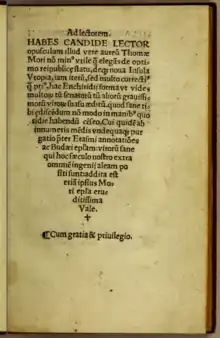 Ad lectorem.
HABES CANDIDE LECTOR
opusculum illud vere aureũ Thomæ
Mori nõ min⁹ vtile q̃ elegãs de opti
mo reipublicę statu, deq; noua Insula
Vtopia, iam iterũ, sed multo correcti⁹
q̃ pri⁹, hac Enchiridij forma vt vides
multorũ tũ senatorũ tũ aliorũ grauissi-
morũ virorũ suasu æditũ, quod sane ti
bi ędiscẽdum nõ modo in manib⁹ quo
tidie habendũ cẽseo. Cui quidẽ ab
innumeris mẽdis vndequaq; pur
gatio p̱ter Erasmi annotatiões
ac Budæi epl̃am: virorũ sane
qui hoc sæculo nostro extra
omnẽ ingenij aleam po
siti sunt: addita est
etiã ipsius Mo
ri epl̃a eru
ditissima
Vale.
✢
¶Cum gratia & priuilegio.